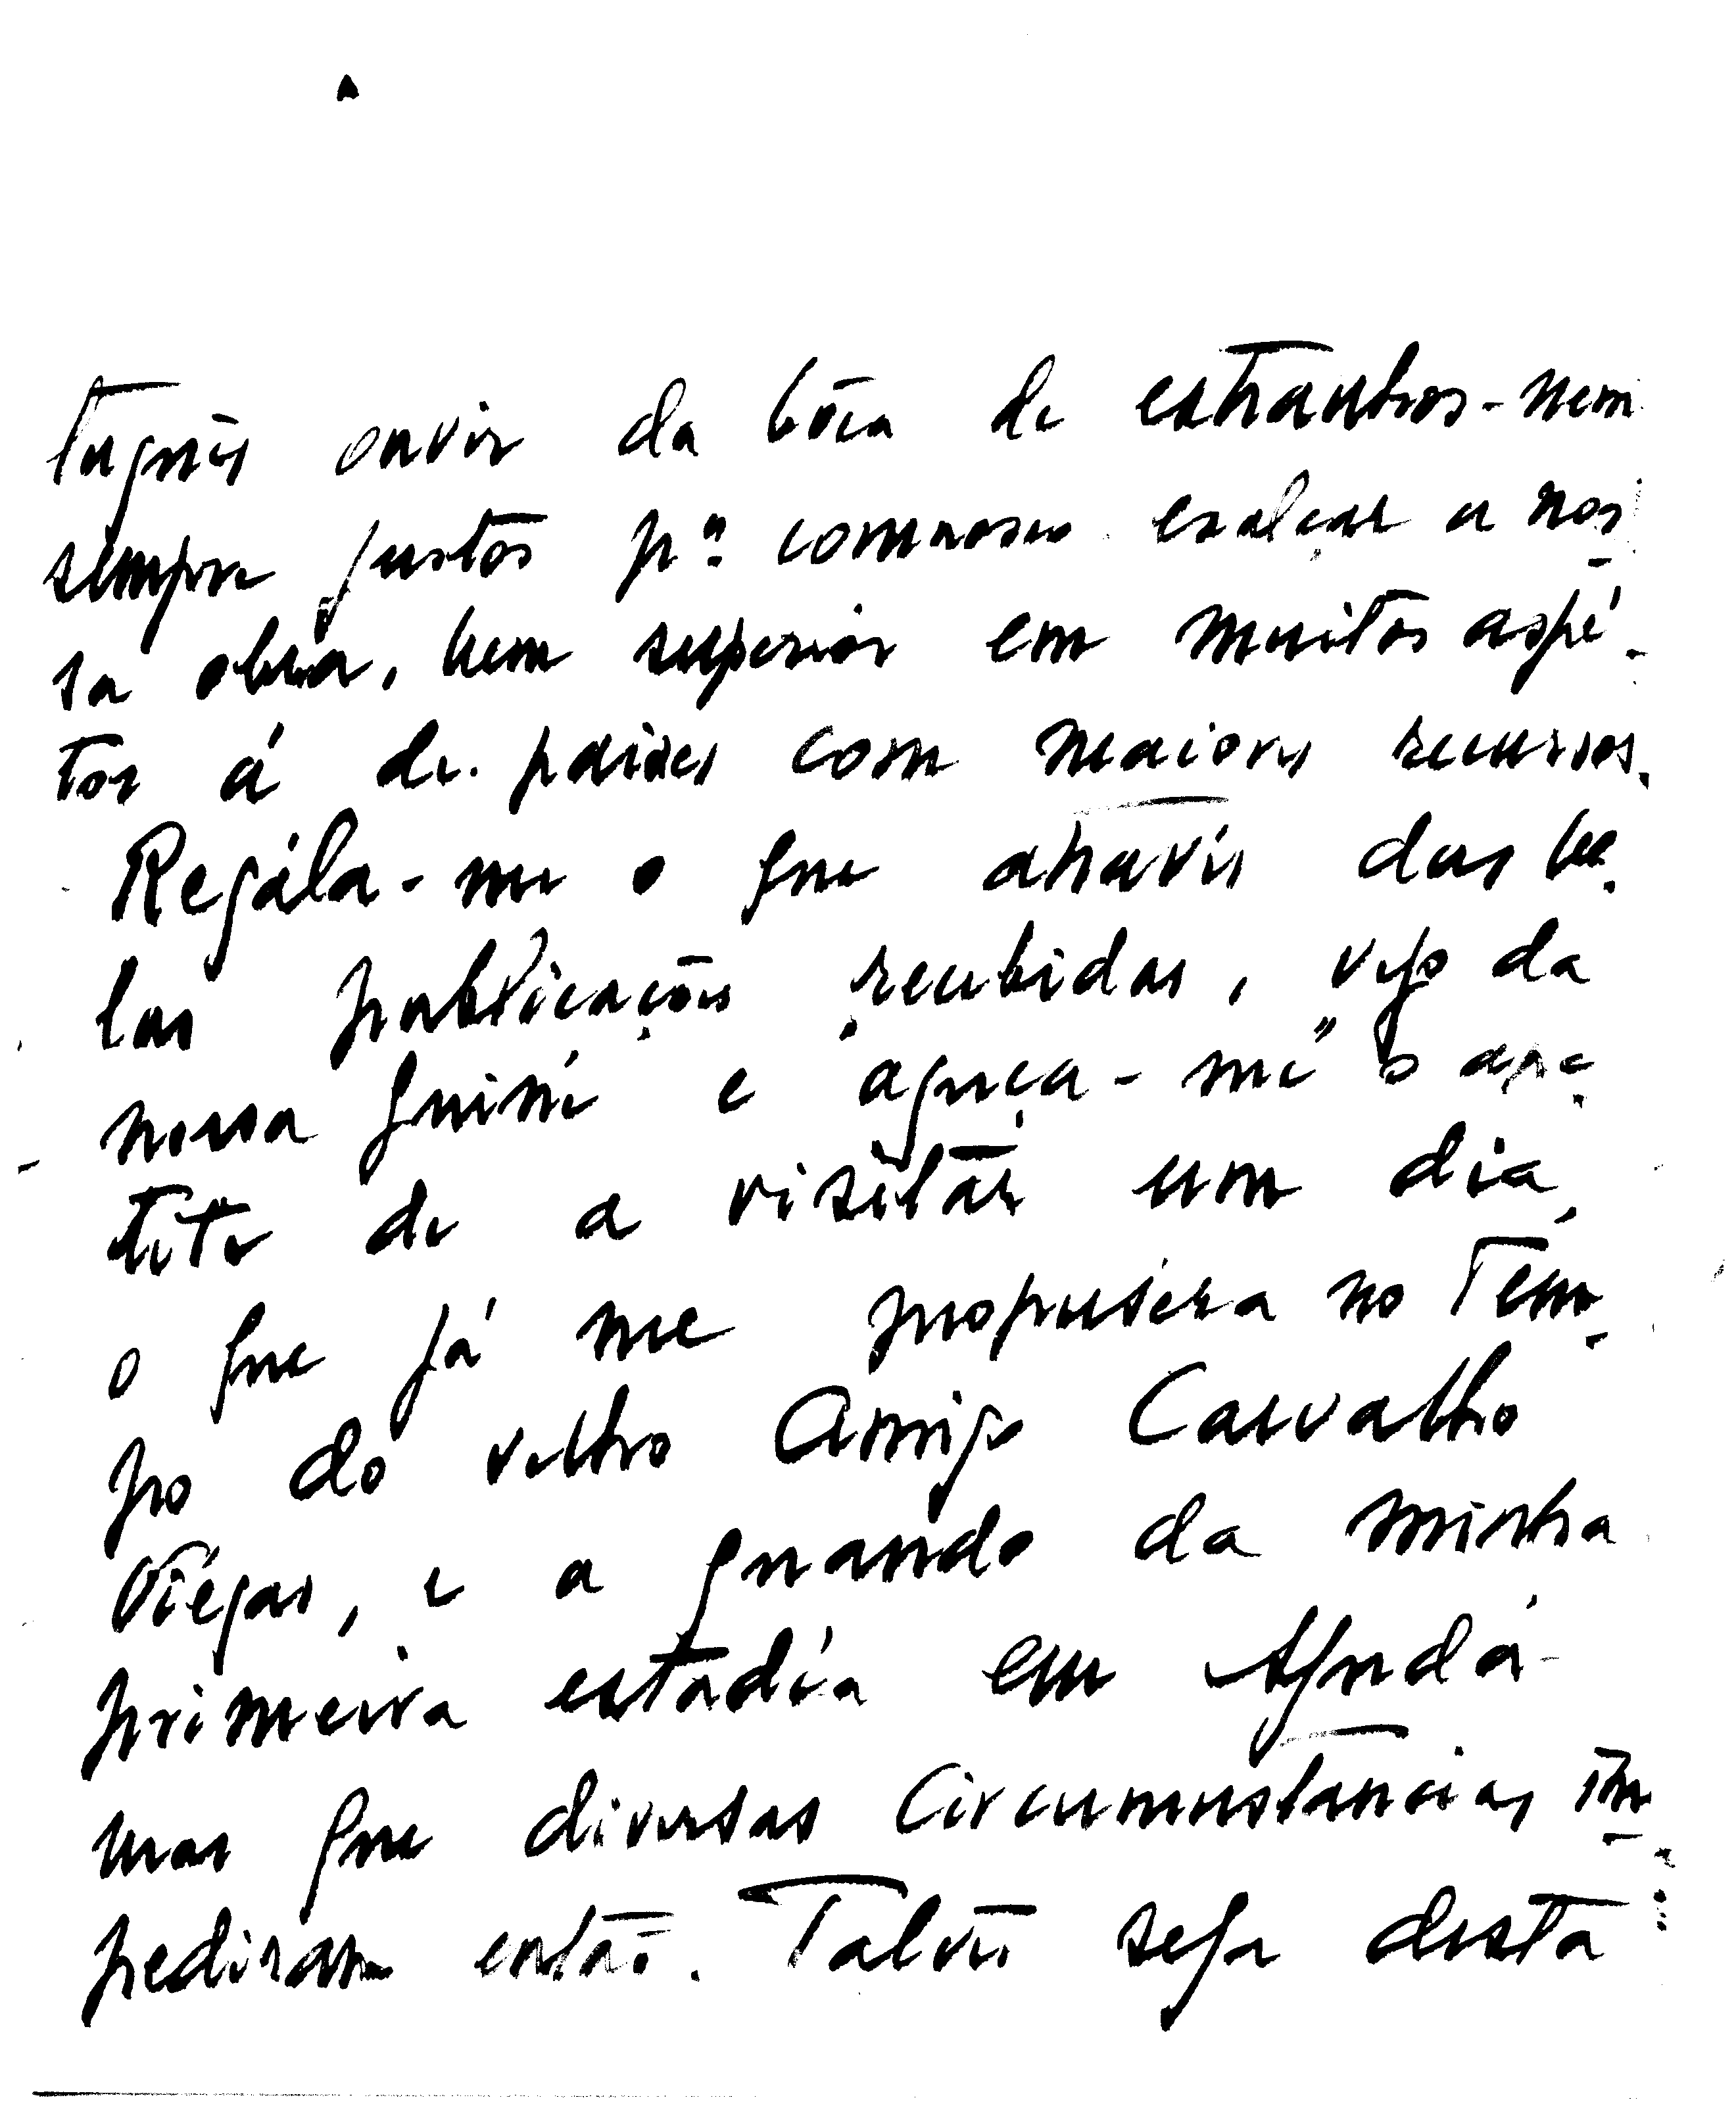 tuguês ouvir da bôca de estranhos - nem
sempre justos pª comnosco exalçar a nos-
sa obra, bem superior em muitos aspé-
tos á de paises com maiores recursos.
Regála-me o que através das be-
las publicações recebidas, vejo da
nossa Guiné e "aguça-me" o ape-
tite de a visitar um dia,
o que já me propusera no tem-
po do velho Amigo Carvalho
Viégas, e a quando da minha
primeira estadía em Ajudá
mas que diversas circumustancias im-
pediram então. Talvês seja desta